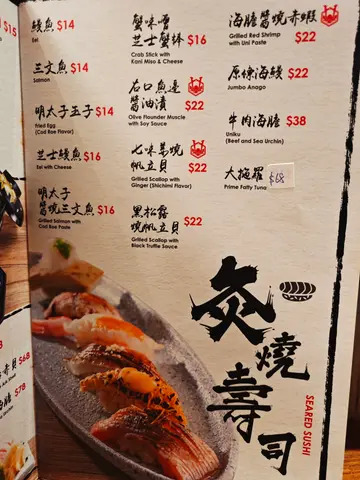 鰻魚 $14
Eel
三文魚 $14
Salmon
明太子玉子 $14
Fried Egg
(Cod Roe Flavor)
芝士鰻魚 $16
Eel with Cheese
明太子
醬燒三文魚 $16
Grilled Salmon with
Cod Roe Paste
蟹味噌
芝士蟹棒 $16
Crab Stick with
Kani Miso & Cheese
右口魚邊
醬油漬 $22
Olive Flounder Muscle
with Soy Sauce
七味薑燒
帆立貝 $22
Grilled Scallop with
Ginger (Shichimi Flavor)
黑松露
燒帆立貝 $22
Grilled Scallop with
Black Truffle Sauce
海膽醬燒赤蝦 $22
Grilled Red Shrimp
with Uni Paste
原條海鰻 $22
Jumbo Anago
牛肉海膽 $38
Uniku
(Beef and Sea Urchin)
大拖羅 $68
Prime Fatty Tuna
炙燒壽司
SEARED SUSHI
$15
$68
$78